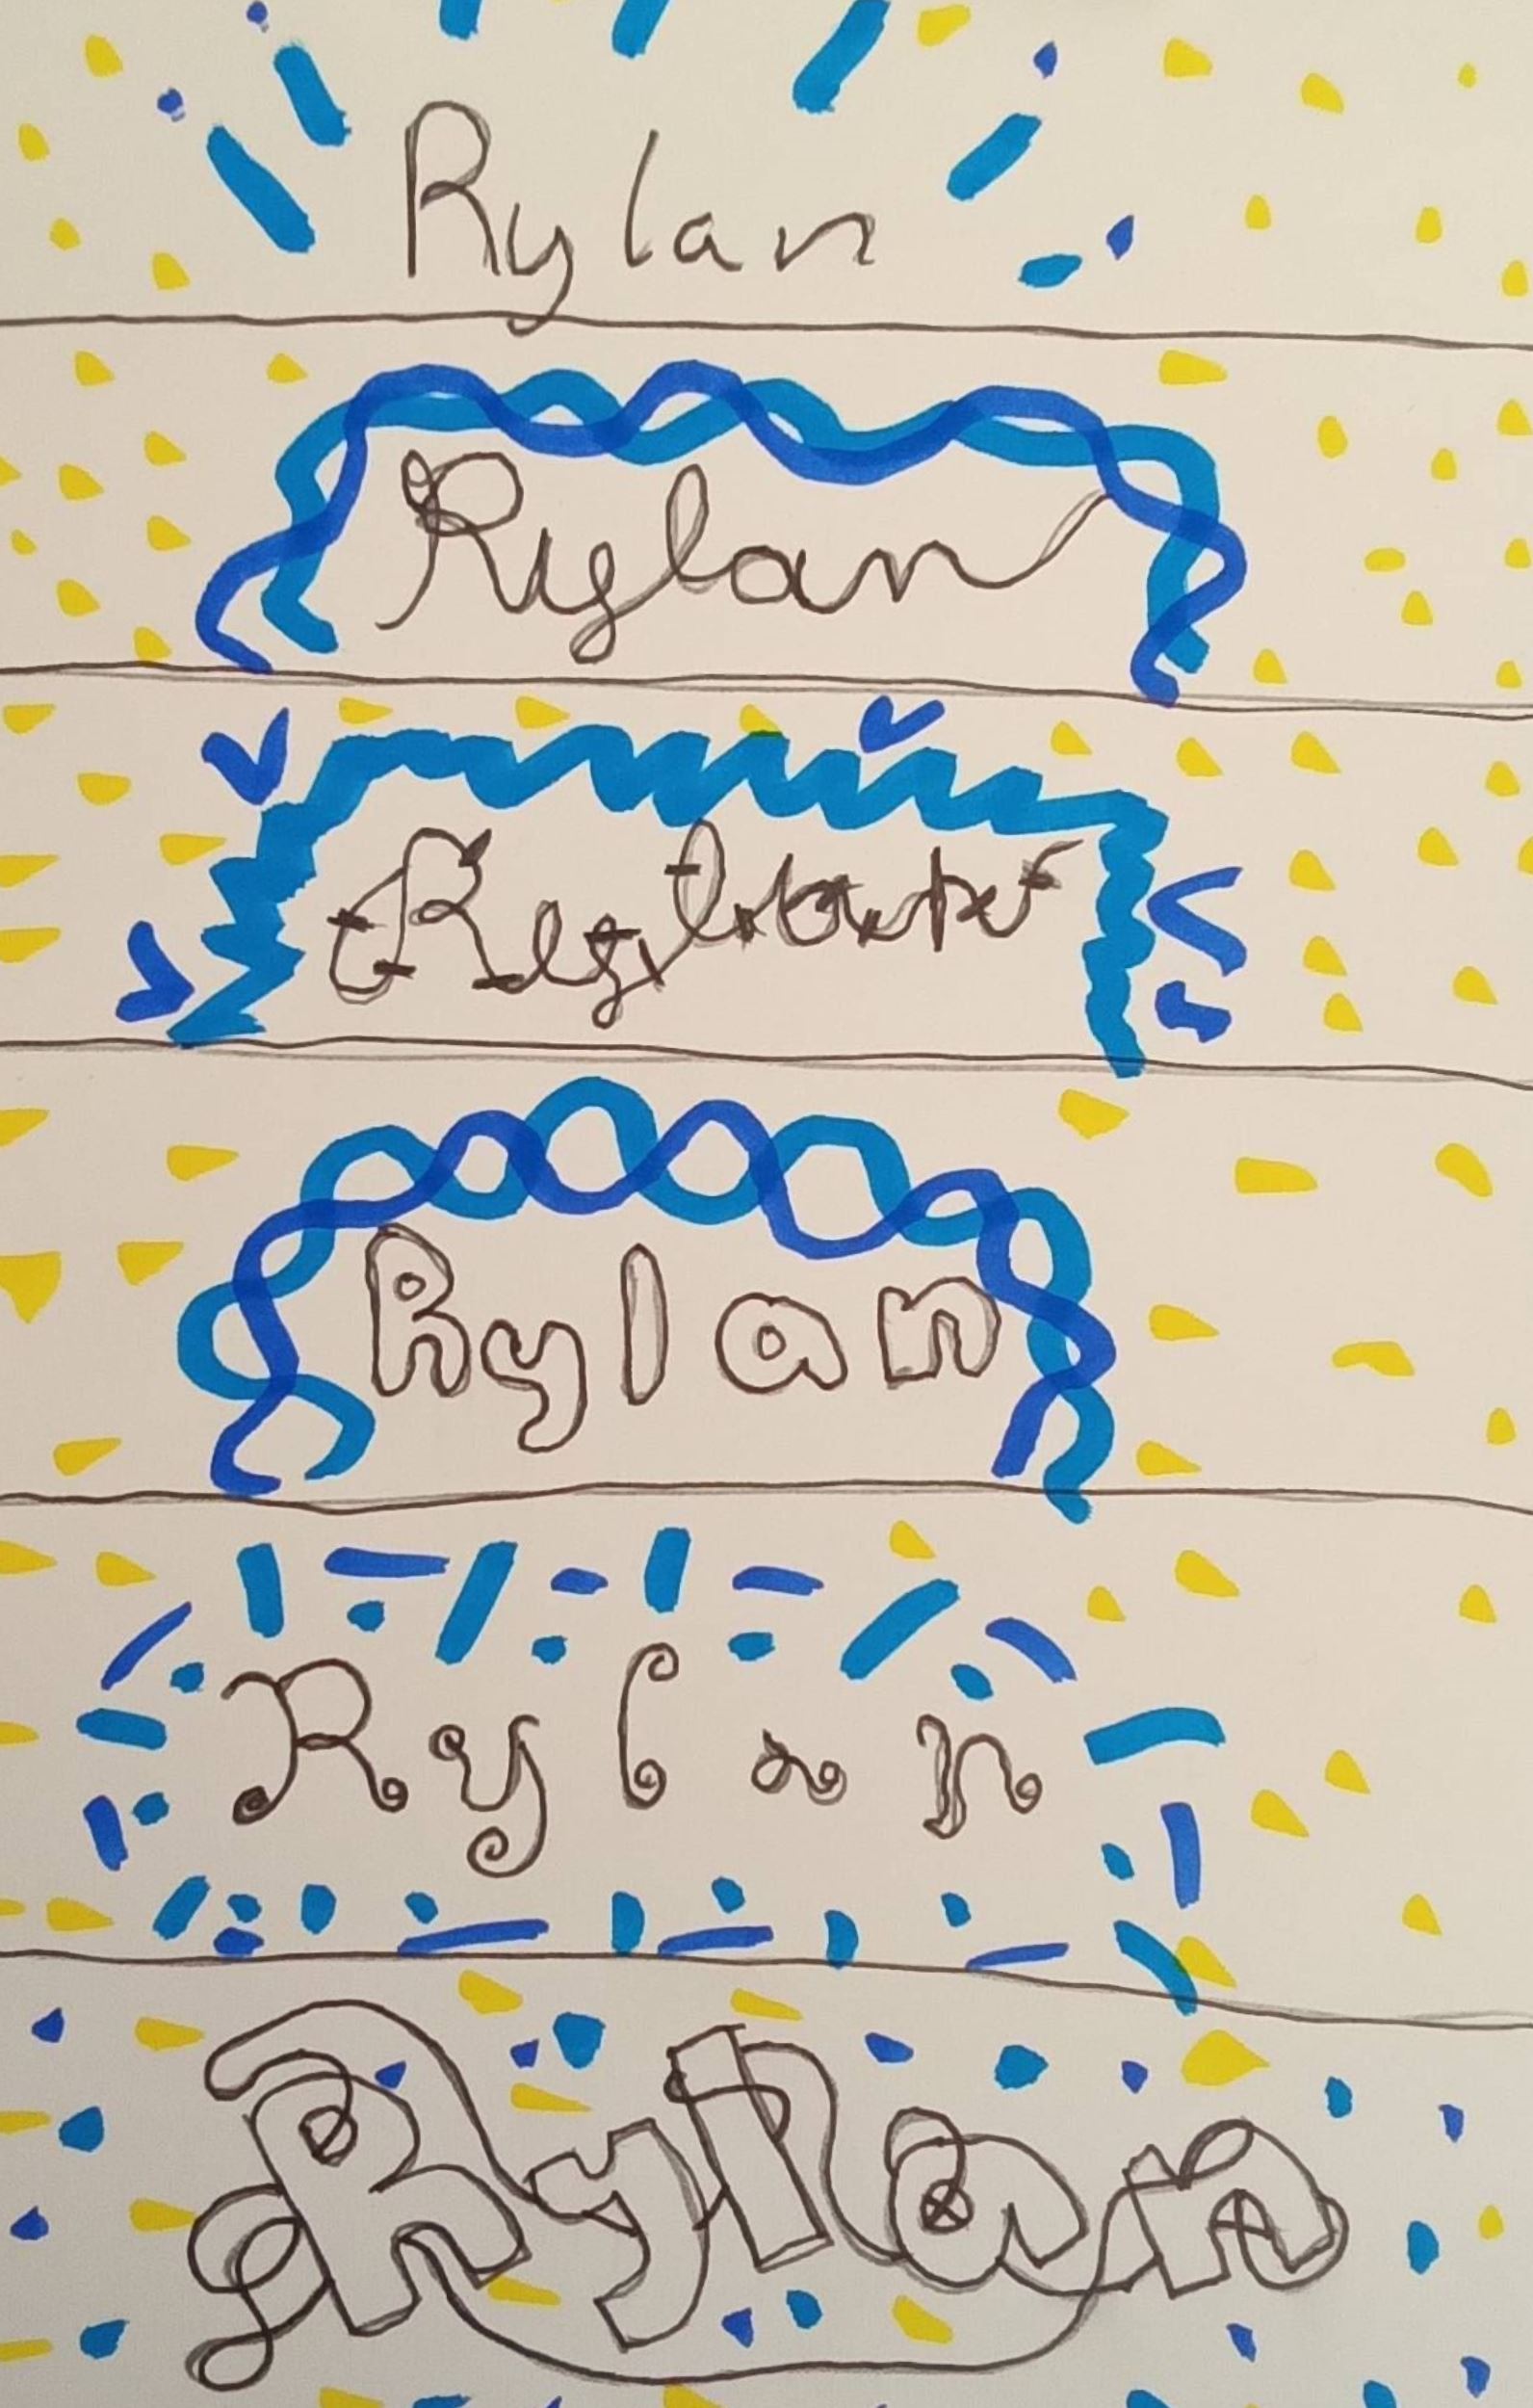 Rylan
Rylan
Rylan
Rylan
Rylan
Rylan